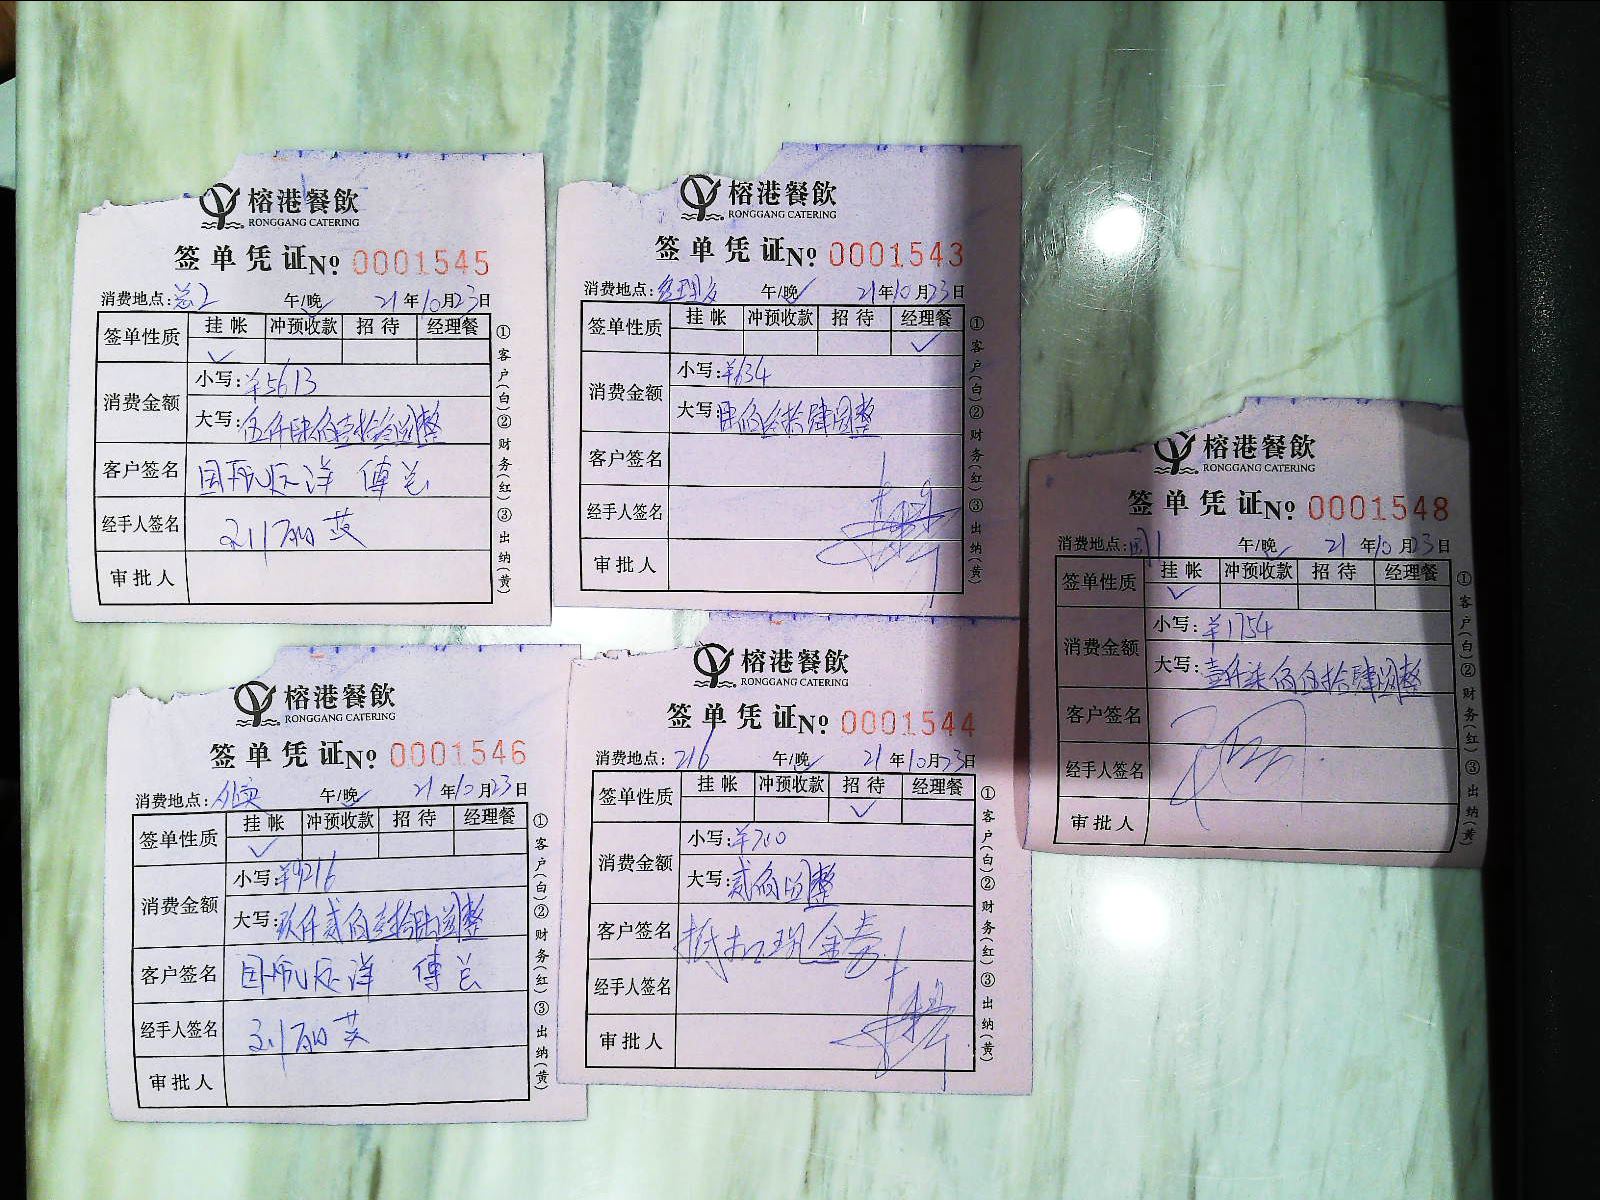 榕港餐飲
RONGGANG CATERING
签单凭证 № 0001545
消费地点: 总2 午/晚 21年10月23日
签单性质 挂帐 冲预收款 招待 经理餐
✓
消费金额 小写: ¥5613
大写: 伍仟陆佰壹拾叁圆整
客户签名 国航远洋 傅总
经手人签名 刘丽英
审批人
①客户(白)②财务(红)③出纳(黄)
榕港餐飲
RONGGANG CATERING
签单凭证 № 0001543
消费地点: 经理 午/晚 21年10月23日
签单性质 挂帐 冲预收款 招待 经理餐
✓
消费金额 小写: ¥634
大写: 佰叁拾肆圆整
客户签名
经手人签名
审批人
①客户(白)②财务(红)③出纳(黄)
榕港餐飲
RONGGANG CATERING
签单凭证 № 0001548
消费地点: 午/晚 21年10月23日
签单性质 挂帐 冲预收款 招待 经理餐
✓
消费金额 小写: ¥1754
大写: 壹仟柒佰伍拾肆圆整
客户签名
经手人签名
审批人
①客户(白)②财务(红)③出纳(黄)
榕港餐飲
RONGGANG CATERING
签单凭证 № 0001546
消费地点: 午/晚 21年10月23日
签单性质 挂帐 冲预收款 招待 经理餐
✓
消费金额 小写: ¥9216
大写: 玖仟贰佰壹拾陆圆整
客户签名 国航远洋 傅总
经手人签名 刘丽英
审批人
①客户(白)②财务(红)③出纳(黄)
榕港餐飲
RONGGANG CATERING
签单凭证 № 0001544
消费地点: 216 午/晚 21年10月23日
签单性质 挂帐 冲预收款 招待 经理餐
✓
消费金额 小写: ¥200
大写: 贰佰圆整
客户签名 抵扣现金券
经手人签名
审批人
①客户(白)②财务(红)③出纳(黄)